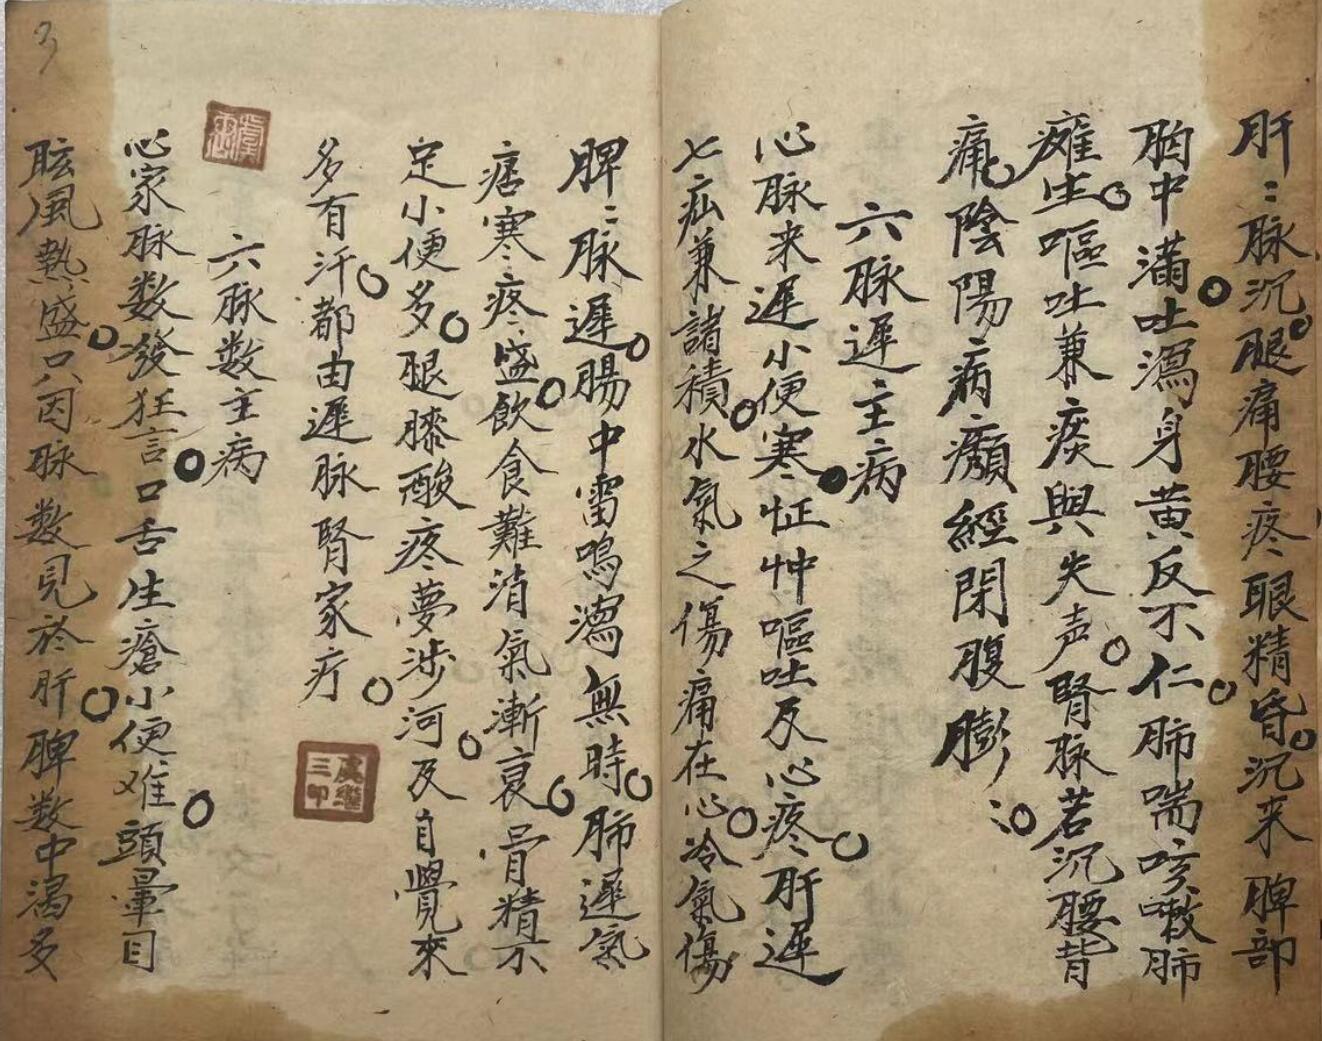 肝〻脉沉腿痛腰疼眼精昏沉来脾部
胸中满吐瀉身黄反不仁肺喘咳嗽肺
癰生嘔吐兼痰與失声腎脉若沉腰背
痛陰陽病癲經閉腹膨〻
六脉遲主病
心脉来遲小便寒怔忡嘔吐及心疼肝遲
七疝兼諸積水氣之傷痛在心冷氣傷
脾〻脉遲腸中雷鳴瀉無時肺遲氣
痞寒疼盛飲食難消氣漸衰骨精不
定小便多腿膝酸疼夢涉河及自覺來
多有汗都由遲脉腎家疗
六脉数主病
心家脉数發狂言口舌生瘡小便难頭暈目
眩風熱盛只因脉数見於肝脾数中渴多
虞繼三印
3